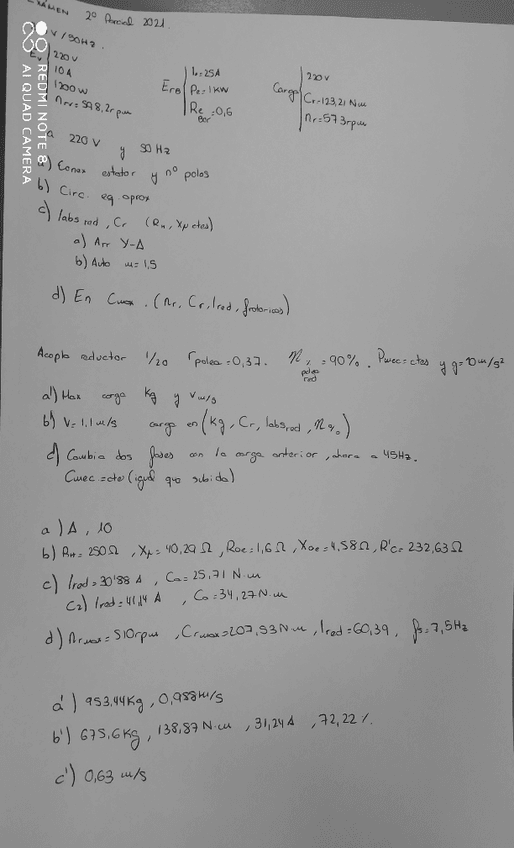 EXAMEN 2º Parcial 2021.
V/50Hz.
Ev 220V
10A
1200W
nrv=598,2rpm
ErB Ie=25A
Pe=1KW
Re bor=0,6
Carga 220V
Cr=123,21 N·m
nr=573rpm
a 220 V y 50 Hz
a) Conex estator y nº polos
b) Circ. eq aprox
c) Iabs red, Cr (RH, Xμ ctes)
a) Arr Y-Δ
b) Auto m=1,5
d) En Cmax. (nr, Cr, Ired, frotoricas)
Acopla reductor 1/20 rpolea=0,37. η polea red =90%. Pmec=ctes y g=10m/s²
a') Max carga Kg y Vm/s
b') V=1.1m/s carga en (Kg, Cr, Iabs red, η%)
c') Cambia dos fases con la carga anterior, ahora a 45Hz.
Cmec=cte (igual que subida)
a) Δ, 10
b) RH=250Ω, Xμ=40,29Ω, Roe=1,6Ω, Xoe=4,58Ω, R'c=232,63Ω
c) Ired=30'88 A, Ca=25,71 N·m
C2) Ired=41,14 A, Ca=34,27N·m
d) nrmax=510rpm, Crmax=207,53N·m, Ired=60,39, fs=7,5Hz
a') 953,44Kg, 0,988m/s
b') 675,6Kg, 138,87N·m, 31,24A, 72,22%.
c') 0,63 m/s
REDMI NOTE 8
AI QUAD CAMERA